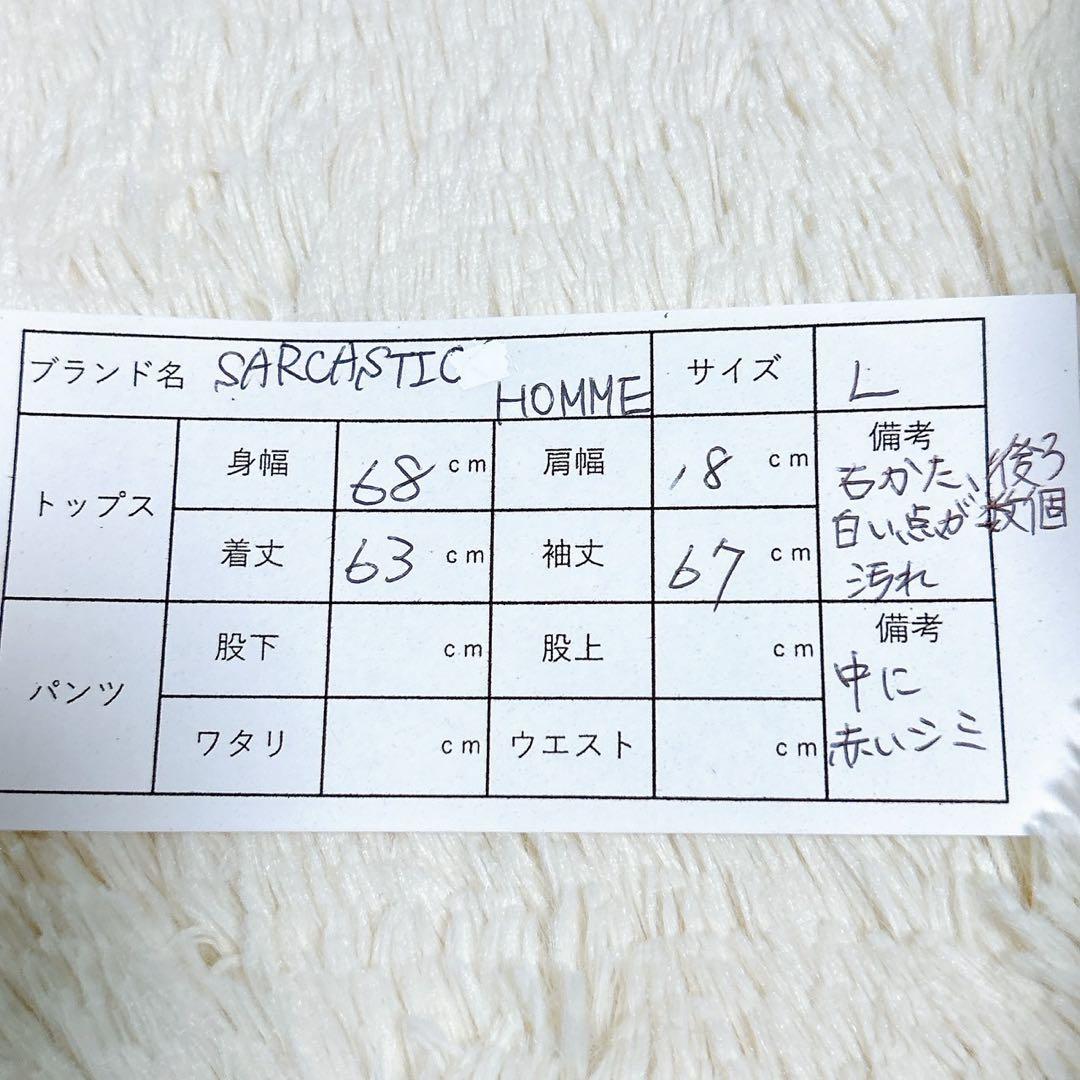 ブランド名 SARCASTIC HOMME サイズ L
トップス 身幅 68 cm 肩幅 18 cm 備考
右かた、後ろ
白い点が数個
着丈 63 cm 袖丈 67 cm
汚れ
パンツ 股下 cm 股上 cm 備考
中に
ワタリ cm ウエスト cm
赤いシミ